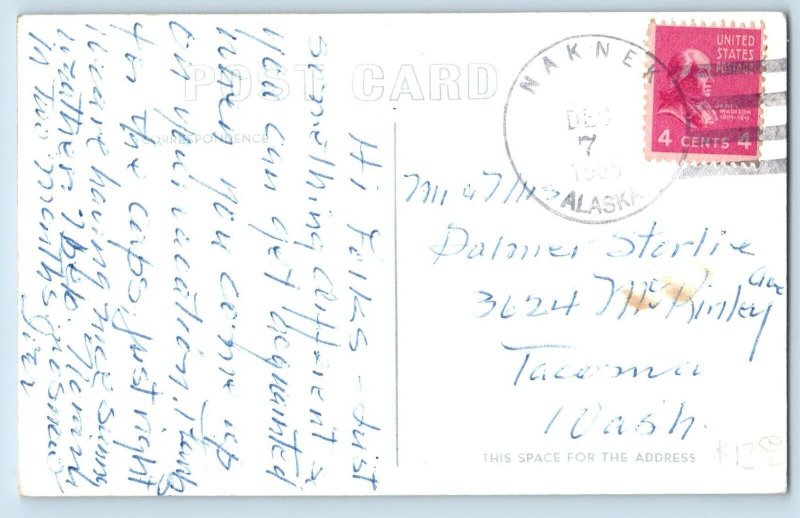 POST CARD
CORRESPONDENCE
Hi Folks - Just
something different &
you can get acquainted
when you come up
on your vacation.
for the caps, just right
we are having nice sunny
weather
in two months
NAKNEK
DEC
7
ALASKA
UNITED
STATES
POSTAGE
JAMES
MADISON
4 CENTS 4
Mr & Mrs
Palmer Storlie
3624 McKinley Ave
Tacoma
Wash.
THIS SPACE FOR THE ADDRESS